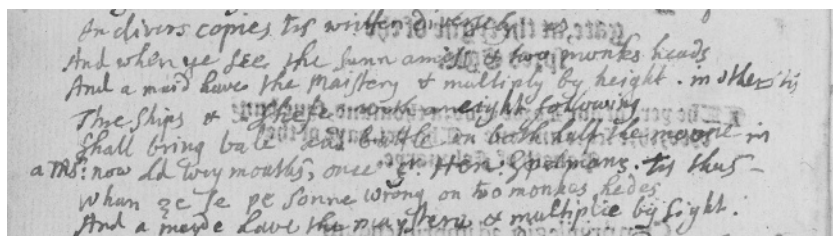 In divers copies tis written diversly as
And when ye see the sunn amiss & two monks heads
And a maid have the Maistery & multiply by height . in others tis
Three Ships & a Sheffe eight following
Shall bring bale and battle on bothhalf the moone in
a MS: now Ld Weymouths, once Sr. Hen: Spelmans . tis thus -
Whan ȝe se þe sonne wrong on two monkes hedes
And a mayde have the maystery & multiplie by sight .